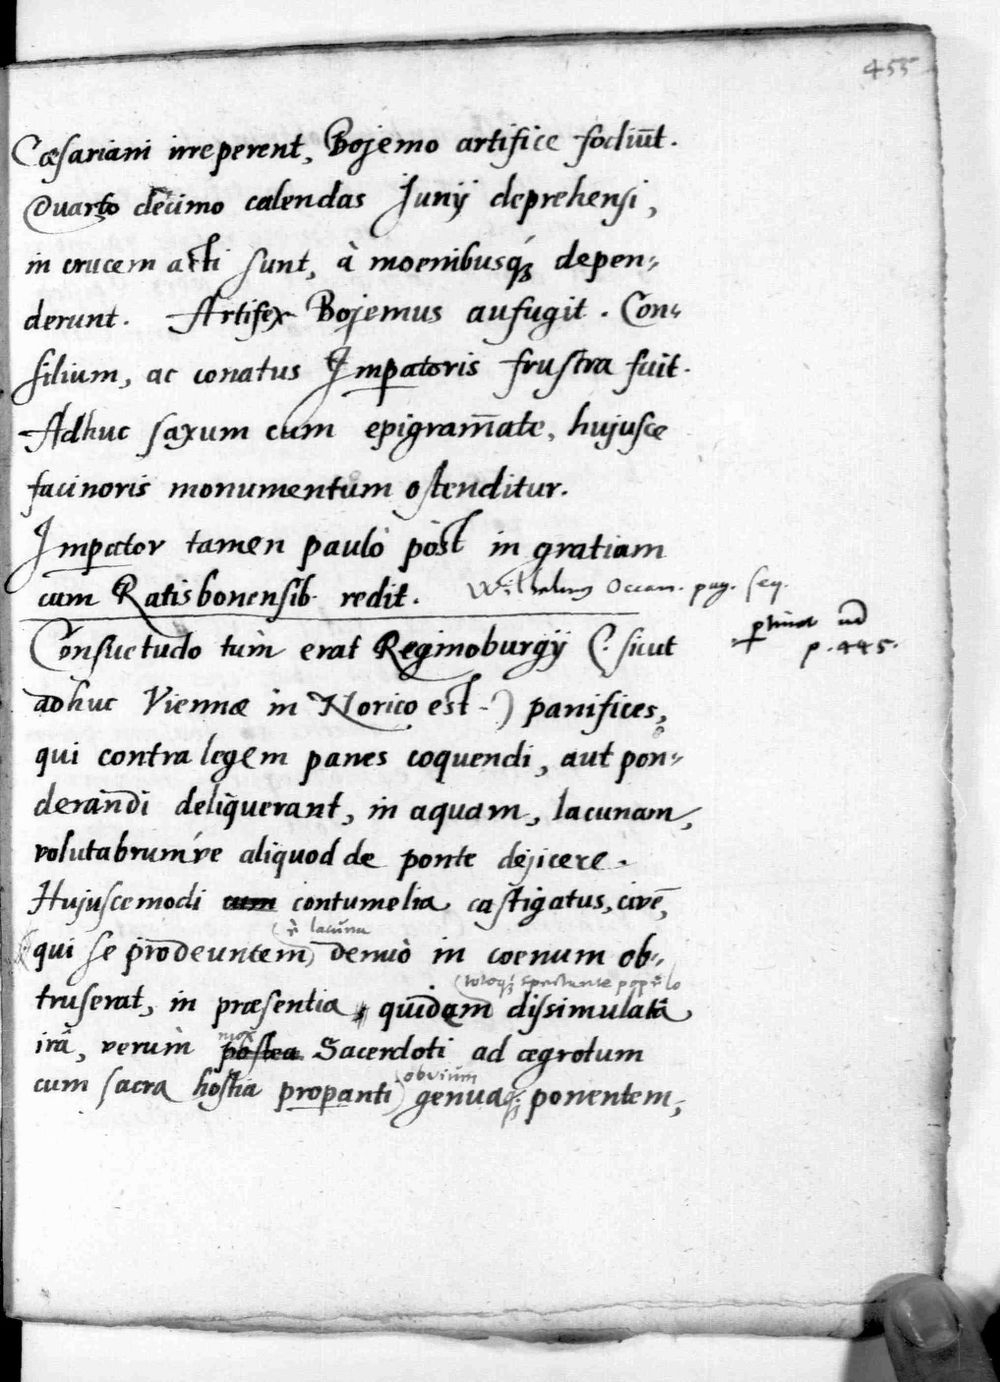 455
Cæsariani irreperent, Bojemo artifice fodiūt.
Quarto decimo calendas Junij deprehensi,
in crucem acti sunt, à moenibusq́; depen-
derunt. Artifex Bojemus aufugit. Con-
silium, ac conatus Imperatoris frustra fuit.
Adhuc saxum cum epigram̄ate, hujusce
facinoris monumentum ostenditur.
Imperator tamen paulò pòst in gratiam
cum Ratisbonensib. redit. Wilhelmus Occam. pag. seq.
pertinet ad
p. 445.
Consuetudo tùm erat Reginoburgij (: sicut
adhuc Viennæ in Norico est -) panifices,
qui contra legem panes coquendi, aut pon-
derandi deliquerant, in aquam, lacunam,
volutabrumv́e aliquod de ponte dejicere.
Hujuscemodi cum contumelia castigatus, civē,
è lacuna
qui se prodeuntem denuò in coenum ob-
totoq́; spectante populo
truserat, in præsentia quidem dissimulatâ
irâ, verùm postea Sacerdoti ad ægrotum
mox
obvium
cum sacra hostia properanti genuaq; ponentem,